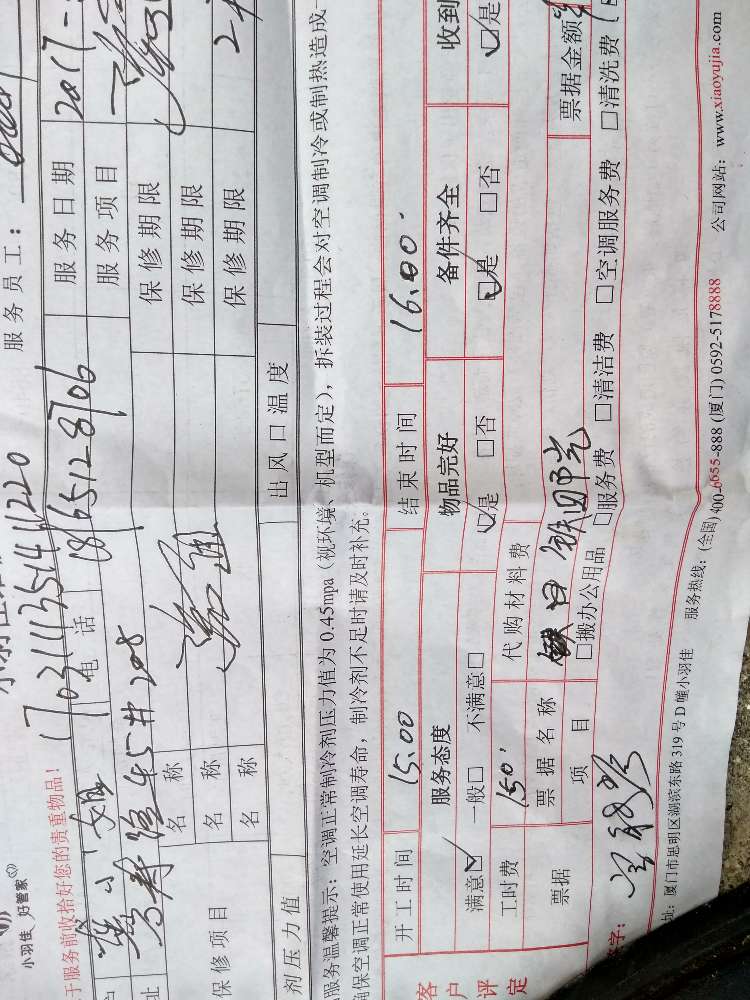 小羽佳 好管家
于服务前收拾好您的贵重物品!
1703111351441220
服务员工:
小姐
电话
18651288706
服务日期
2017
址
45#
208
服务项目
保修项目
名称
保修期限
名称
保修期限
名称
保修期限
剂压力值
出风口温度
服务温馨提示:空调正常制冷剂压力值为0.45mpa(视环境、机型而定),拆装过程会对空调制冷或制热造成一
确保空调正常使用延长空调寿命,制冷剂不足时请及时补充。
客户评定
开工时间
15.00
结束时间
16.00
服务态度
物品完好
备件齐全
收到
满意☑ 一般□ 不满意□
☑是 □否
☑是 □否
☑是
工时费
150
代购材料费
票据
票据名称
票据金额
项目
□搬办公用品 □服务费 □清洁费 □空调服务费 □清洗费
签字:
址:厦门市思明区湖滨东路319号D幢小羽佳 服务热线:(全国)400-6655-888 (厦门) 0592-5178888 公司网站:www.xiaoyujia.com